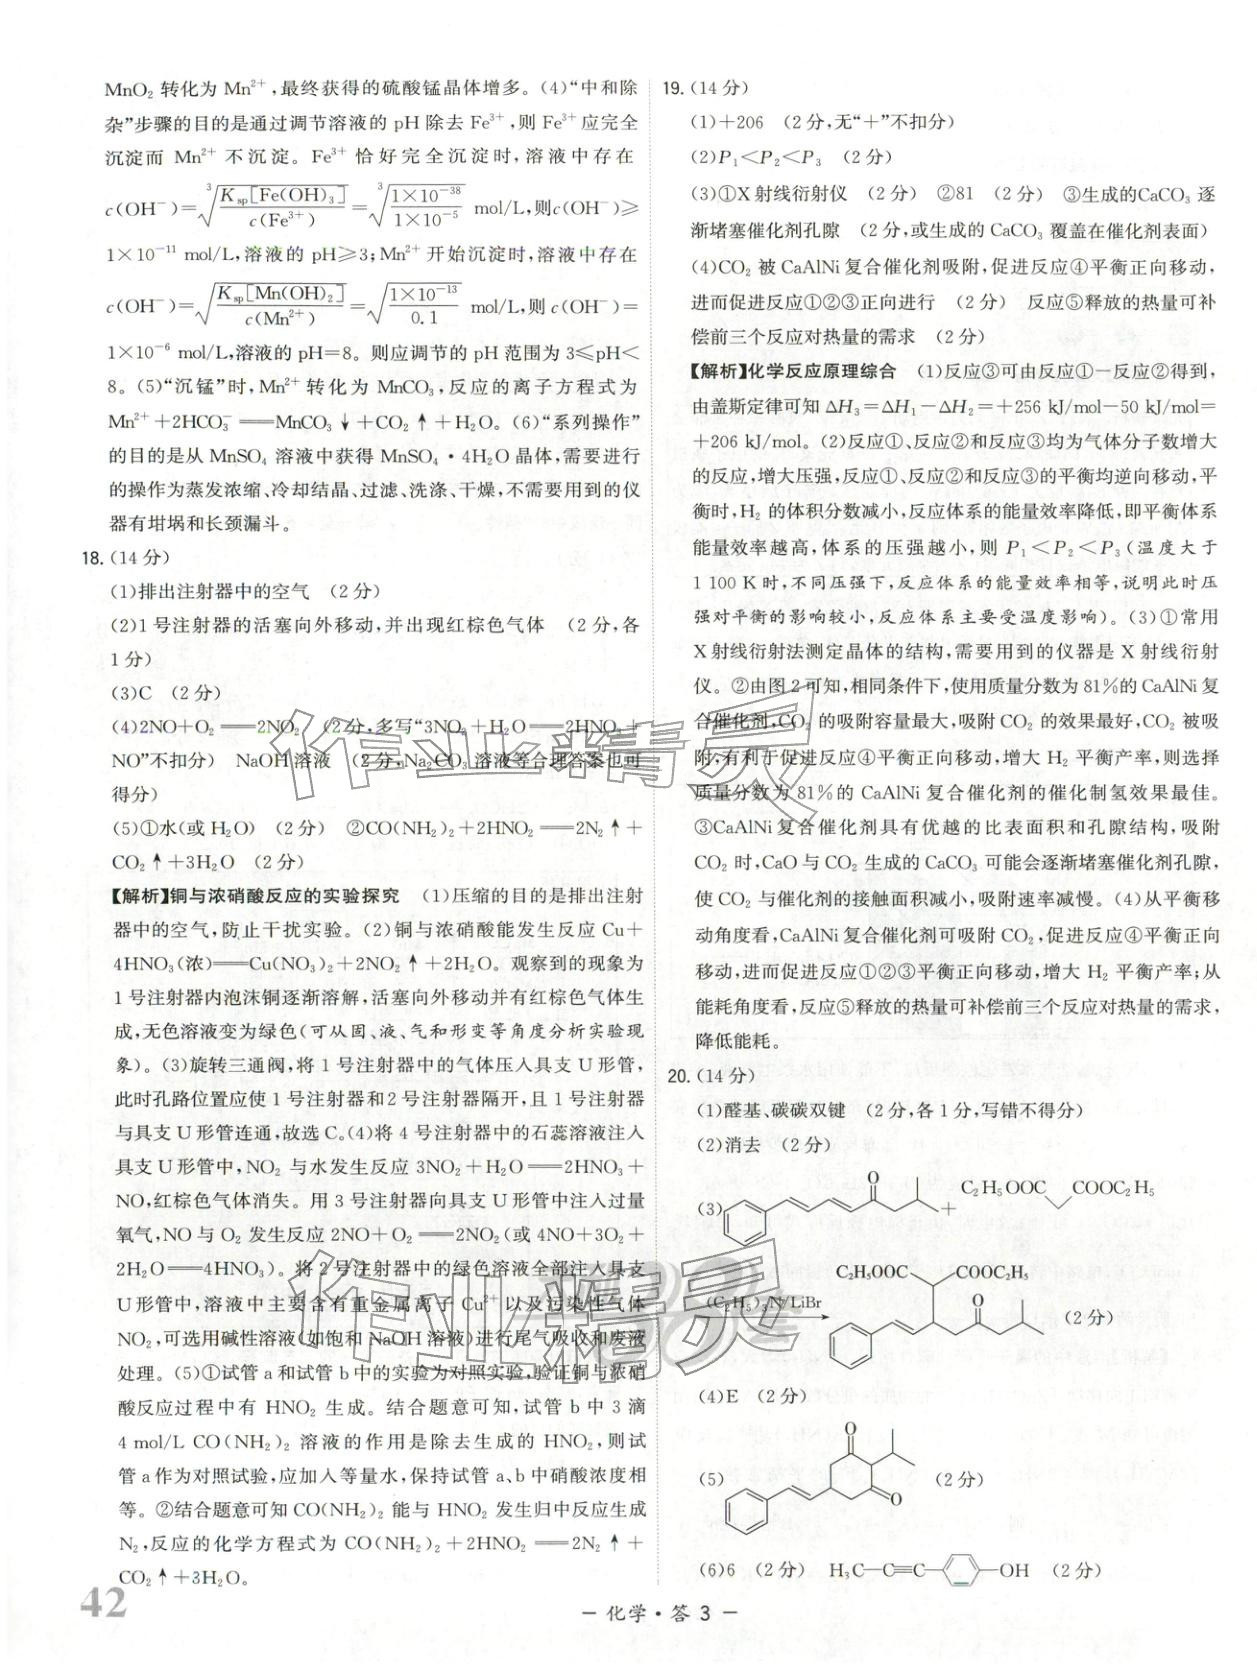 MnO₂ 转化为 Mn²⁺,最终获得的硫酸锰晶体增多。(4)“中和除
杂”步骤的目的是通过调节溶液的 pH 除去 Fe³⁺,则 Fe³⁺应完全
沉淀而 Mn²⁺ 不沉淀。Fe³⁺ 恰好完全沉淀时,溶液中存在
c(OH⁻)=∛(Kₛₚ[Fe(OH)₃]/c(Fe³⁺))=∛(1×10⁻³⁸/1×10⁻⁵) mol/L,则c(OH⁻)≥
1×10⁻¹¹ mol/L,溶液的 pH≥3;Mn²⁺开始沉淀时,溶液中存在
c(OH⁻)=√(Kₛₚ[Mn(OH)₂]/c(Mn²⁺))=√(1×10⁻¹³/0.1) mol/L,则 c(OH⁻)=
1×10⁻⁶ mol/L,溶液的 pH=8。则应调节的 pH 范围为 3≤pH<
8。(5)“沉锰”时,Mn²⁺ 转化为 MnCO₃,反应的离子方程式为
Mn²⁺+2HCO₃⁻══MnCO₃↓+CO₂↑+H₂O。(6)“系列操作”
的目的是从 MnSO₄ 溶液中获得 MnSO₄·4H₂O 晶体,需要进行
的操作为蒸发浓缩、冷却结晶、过滤、洗涤、干燥,不需要用到的仪
器有坩埚和长颈漏斗。
18.(14 分)
(1)排出注射器中的空气 (2 分)
(2)1 号注射器的活塞向外移动,并出现红棕色气体 (2 分,各
1 分)
(3)C (2 分)
(4)2NO+O₂══2NO₂ (2 分,多写“3NO₂+H₂O══2HNO₃+
NO”不扣分) NaOH 溶液 (2 分,Na₂CO₃ 溶液等合理答案也可
得分)
(5)①水(或 H₂O) (2 分) ②CO(NH₂)₂+2HNO₂══2N₂↑+
CO₂↑+3H₂O (2 分)
【解析】铜与浓硝酸反应的实验探究 (1)压缩的目的是排出注射
器中的空气,防止干扰实验。(2)铜与浓硝酸能发生反应 Cu+
4HNO₃(浓)══Cu(NO₃)₂+2NO₂↑+2H₂O。观察到的现象为
1 号注射器内泡沫铜逐渐溶解,活塞向外移动并有红棕色气体生
成,无色溶液变为绿色(可从固、液、气和形变等角度分析实验现
象)。(3)旋转三通阀,将 1 号注射器中的气体压入具支 U 形管,
此时孔路位置应使 1 号注射器和 2 号注射器隔开,且 1 号注射器
与具支 U 形管连通,故选 C。(4)将 4 号注射器中的石蕊溶液注入
具支 U 形管中,NO₂ 与水发生反应 3NO₂+H₂O══2HNO₃+
NO,红棕色气体消失。用 3 号注射器向具支 U 形管中注入过量
氧气,NO 与 O₂ 发生反应 2NO+O₂══2NO₂(或 4NO+3O₂+
2H₂O══4HNO₃)。将 2 号注射器中的绿色溶液全部注入具支
U形管中,溶液中主要含有重金属离子 Cu²⁺ 以及污染性气体
NO₂,可选用碱性溶液(如饱和 NaOH 溶液)进行尾气吸收和废液
处理。(5)①试管 a 和试管 b 中的实验为对照实验,验证铜与浓硝
酸反应过程中有 HNO₂ 生成。结合题意可知,试管 b 中 3 滴
4 mol/L CO(NH₂)₂ 溶液的作用是除去生成的 HNO₂,则试
管 a 作为对照试验,应加入等量水,保持试管 a、b 中硝酸浓度相
等。②结合题意可知 CO(NH₂)₂ 能与 HNO₂ 发生归中反应生成
N₂,反应的化学方程式为 CO(NH₂)₂+2HNO₂══2N₂↑+
CO₂↑+3H₂O。
19.(14 分)
(1)+206 (2 分,无“+”不扣分)
(2)P₁<P₂<P₃ (2 分)
(3)①X 射线衍射仪 (2 分) ②81 (2 分) ③生成的CaCO₃ 逐
渐堵塞催化剂孔隙 (2 分,或生成的 CaCO₃ 覆盖在催化剂表面)
(4)CO₂ 被 CaAlNi 复合催化剂吸附,促进反应④平衡正向移动,
进而促进反应①②③正向进行 (2 分) 反应⑤释放的热量可补
偿前三个反应对热量的需求 (2 分)
【解析】化学反应原理综合 (1)反应③可由反应①-反应②得到,
由盖斯定律可知 ΔH₃=ΔH₁-ΔH₂=+256 kJ/mol-50 kJ/mol=
+206 kJ/mol。(2)反应①、反应②和反应③均为气体分子数增大
的反应,增大压强,反应①、反应②和反应③的平衡均逆向移动,平
衡时,H₂ 的体积分数减小,反应体系的能量效率降低,即平衡体系
能量效率越高,体系的压强越小,则 P₁<P₂<P₃(温度大于
1 100 K 时,不同压强下,反应体系的能量效率相等,说明此时压
强对平衡的影响较小,反应体系主要受温度影响)。(3)①常用
X 射线衍射法测定晶体的结构,需要用到的仪器是 X 射线衍射
仪。②由图 2 可知,相同条件下,使用质量分数为 81%的 CaAlNi 复
合催化剂,CO₂ 的吸附容量最大,吸附 CO₂ 的效果最好,CO₂ 被吸
附,有利于促进反应④平衡正向移动,增大 H₂ 平衡产率,则选择
质量分数为 81%的 CaAlNi 复合催化剂的催化制氢效果最佳。
③CaAlNi 复合催化剂具有优越的比表面积和孔隙结构,吸附
CO₂ 时,CaO 与 CO₂ 生成的 CaCO₃ 可能会逐渐堵塞催化剂孔隙,
使 CO₂ 与催化剂的接触面积减小,吸附速率减慢。(4)从平衡移
动角度看,CaAlNi 复合催化剂可吸附 CO₂,促进反应④平衡正向
移动,进而促进反应①②③平衡正向移动,增大 H₂ 平衡产率;从
能耗角度看,反应⑤释放的热量可补偿前三个反应对热量的需求,
降低能耗。
20.(14 分)
(1)醛基、碳碳双键 (2 分,各 1 分,写错不得分)
(2)消去 (2 分)
(3) O + C₂H₅OOC COOC₂H₅
C₂H₅OOC COOC₂H₅
(C₂H₅)₃N/LiBr O (2 分)
(4)E (2 分)
(5) O O (2 分)
(6)6 (2 分) H₃C—C≡C— —OH (2 分)
42
— 化学·答 3 —
作业精灵
作业精灵